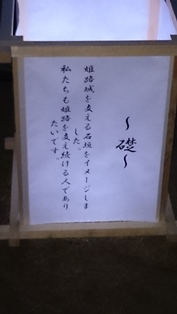 ～礎～
姫路城を支える石垣をイメージしま
した。
私たちも姫路を支え続ける人であり
たいです。